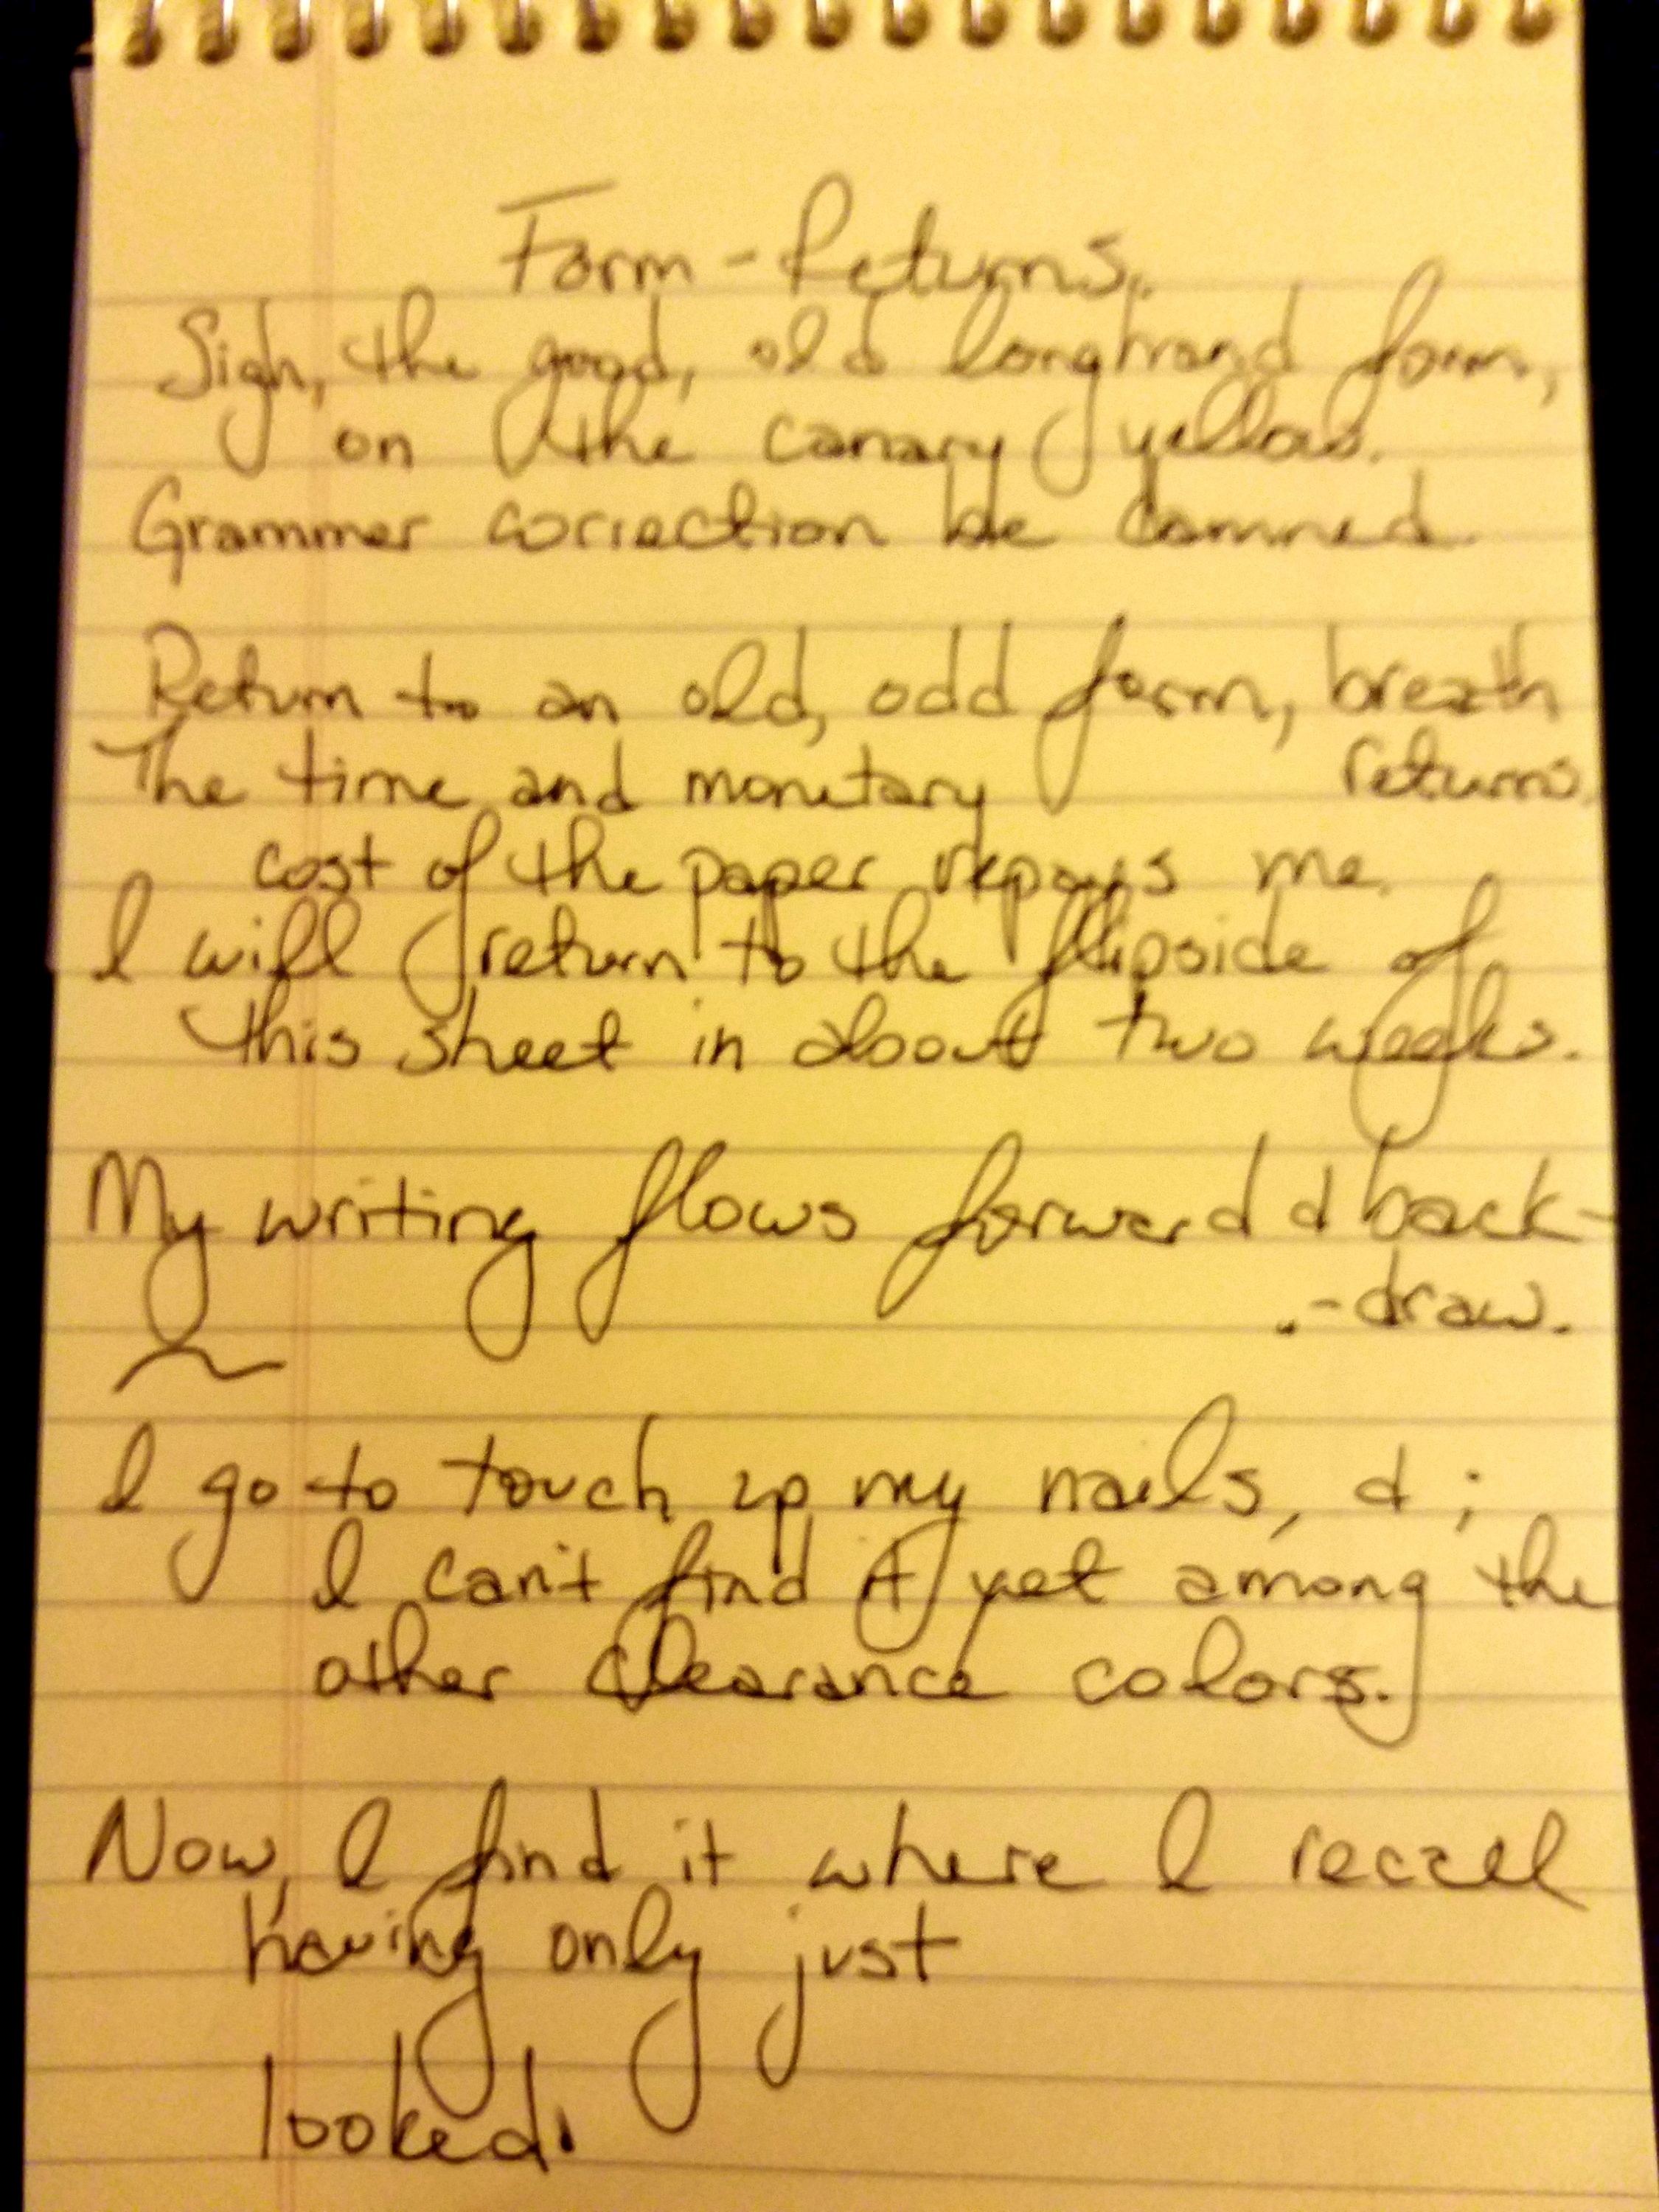 Form-Returns.
Sigh, the good, old longhand form,
on the canary yellow.
Grammer correction be damned.
Return to an old, odd form, breath
returns.
The time and monetary
cost of the paper repays me.
I will return to the flipside of
this sheet in about two weeks.
My writing flows forward & back-
-draw.
I go to touch up my nails, & ;
I can't find it yet among the
other clearance colors.
Now, I find it where I recall
having only just
looked.